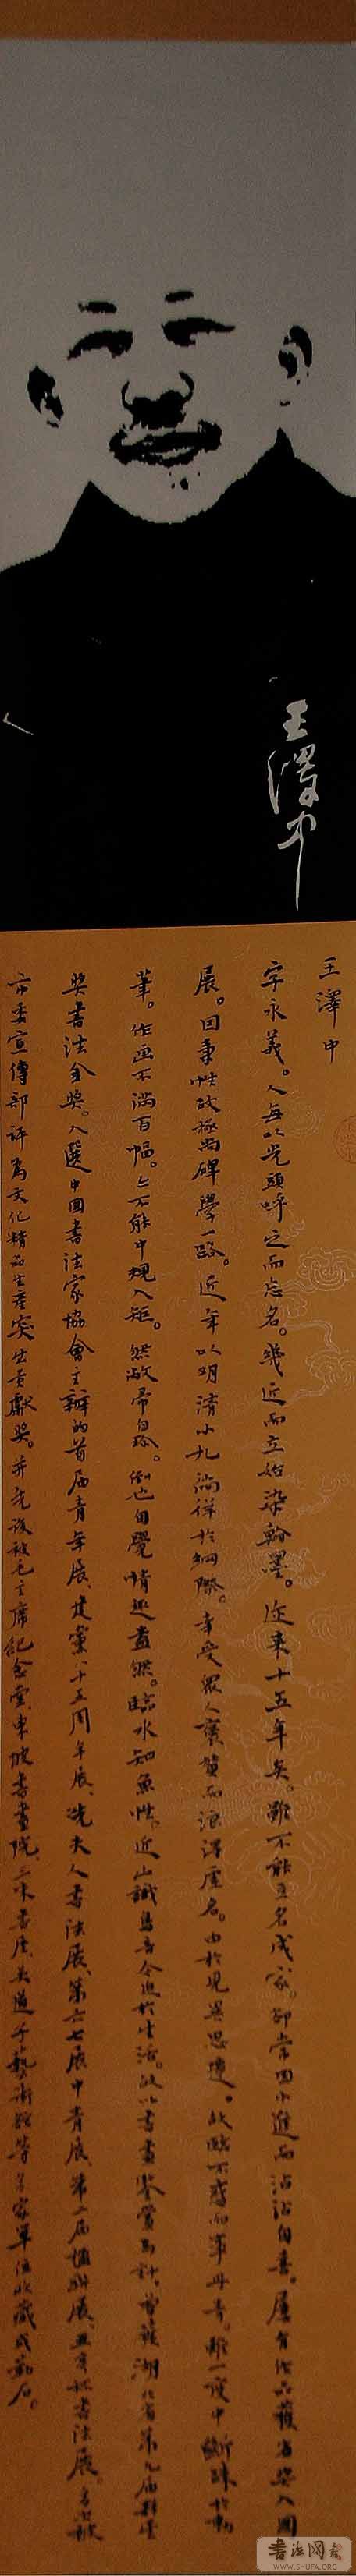 王澤中
王澤中
字永義。人每以光頭呼之而忘名。幾近而立始染翰墨。迄来十五年矣。雖不能立名成家。卻常因小進而沾沾自喜。屢有作品獲省奖入國
展。因秉性故極尚碑學一路。近年以明清小札徜徉於細際。幸受眾人褒贊而浪得虚名。由於見異思遷。故臨不惑而弄丹青。雖一度中斷
筆。作画不滿百幅。亦不能中規入矩。然敝帚自珍。倒也自覺情趣盎然。臨水知魚性。近山識鳥音令進於生活。故以書畫鑒賞為計。曾獲湖北省第九届
奖書法金奖。入選中國書法家協會主辦的首届青年展、建黨八十五周年展、冼夫人書法展、第六七展中青展、第二届楹聯展、書法展。
市委宣傳部評為文化精品生産突出貢獻奖。并先後被毛主席記念堂、東坡書畫院、三味書屋、吴道子藝術館等多家單位收藏或勒石。
書法网
WWW.SHUFA.ORG